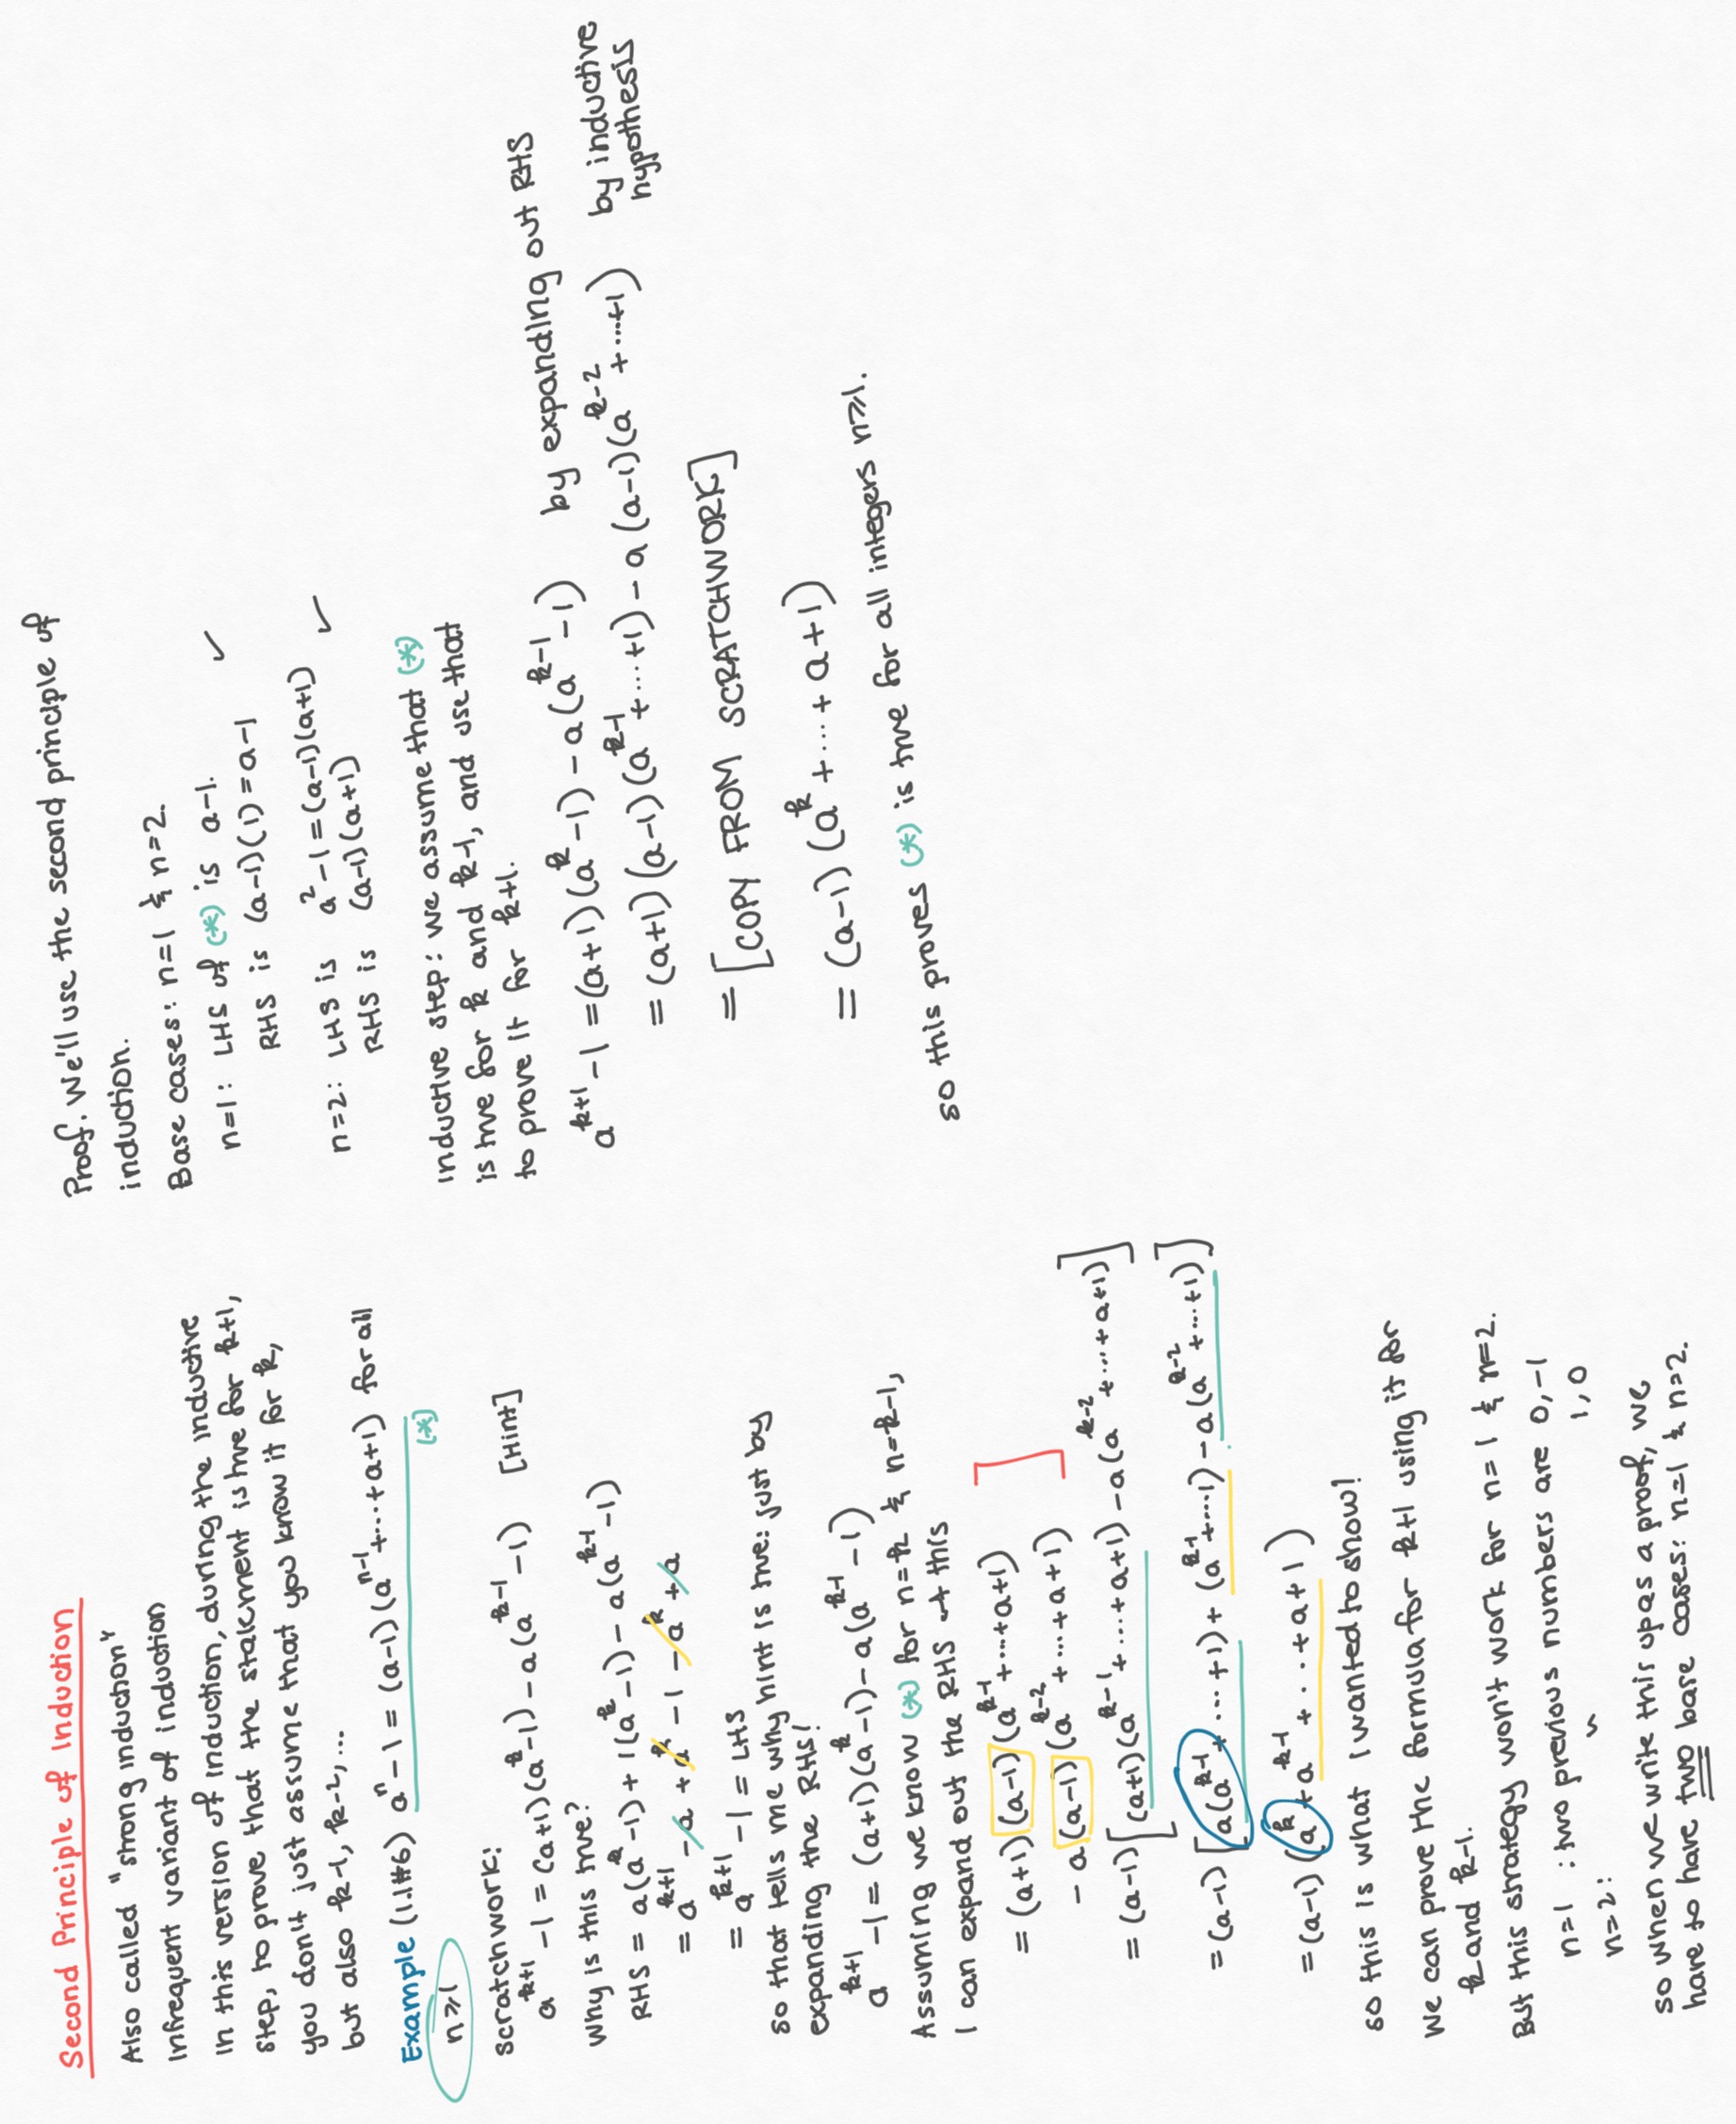 Second Principle of Induction
Also called "strong induction"
Infrequent variant of induction
In this version of induction, during the inductive
step, to prove that the statement is true for k+1,
you don't just assume that you know it for k,
but also k-1, k-2, ...
Example (1.1#6) a^n - 1 = (a-1)(a^{n-1}+...+a+1) for all
(*)
n≥1
Scratchwork:
a^{k+1} - 1 = (a+1)(a^k-1) - a(a^{k-1}-1) [Hint]
Why is this true?
RHS = a(a^k-1) + 1(a^k-1) - a(a^{k-1}-1)
= a^{k+1} - a + a^k - 1 - a^k + a
= a^{k+1} - 1 = LHS
So that tells me why hint is true: just by
expanding the RHS!
a^{k+1} - 1 = (a+1)(a^k-1) - a(a^{k-1}-1)
Assuming we know (*) for n=k & n=k-1,
I can expand out the RHS of this
= (a+1)(a-1)(a^{k-1}+...+a+1)
- a(a-1)(a^{k-2}+...+a+1)
= (a-1)[(a+1)(a^{k-1}+...+a+1) - a(a^{k-2}+...+a+1)]
= (a-1)[a(a^{k-1}+...+1) + (a^{k-1}+...1) - a(a^{k-2}+...+1)]
= (a-1)(a^k+a^{k-1}+...+a+1)
so this is what I wanted to show!
We can prove the formula for k+1 using it for
k and k-1.
But this strategy won't work for n=1 & n=2.
n=1 : two previous numbers are 0,-1
n=2: " 1,0
so when we write this up as a proof, we
have to have two base cases: n=1 & n=2.
Proof. We'll use the second principle of
induction.
Base cases: n=1 & n=2.
n=1: LHS of (*) is a-1. ✓
RHS is (a-1)(1)=a-1
n=2: LHS is a^2-1=(a-1)(a+1) ✓
RHS is (a-1)(a+1)
Inductive step: we assume that (*)
is true for k and k-1, and use that
to prove it for k+1.
a^{k+1} - 1 = (a+1)(a^k-1) - a(a^{k-1}-1) by expanding out RHS
= (a+1)(a-1)(a^{k-1}+...+1) - a(a-1)(a^{k-2}+...+1) by inductive
hypothesis
= [COPY FROM SCRATCHWORK]
= (a-1)(a^k+...+a+1)
so this proves (*) is true for all integers n≥1.